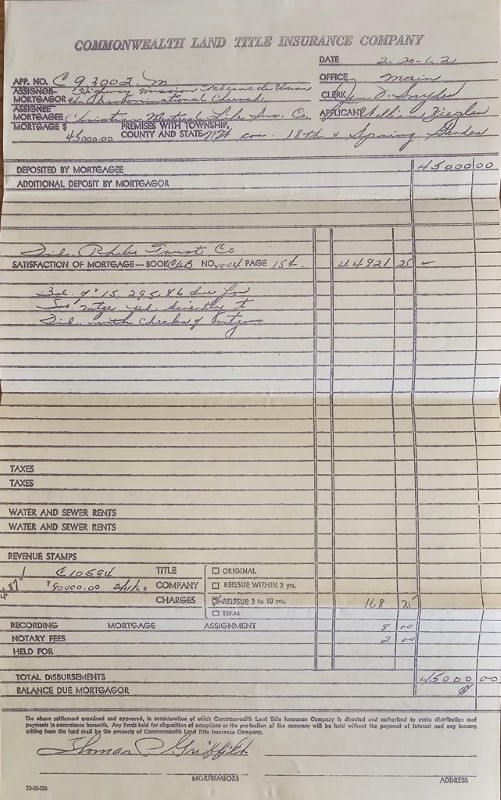 COMMONWEALTH LAND TITLE INSURANCE COMPANY
DATE 2-20-62
APP. NO. C 93003 M OFFICE Main
ASSIGNOR
MORTGAGOR CLERK Snyder
ASSIGNEE
MORTGAGEE Christian Mutual Life Ins. Co. APPLICANT Phillips Ziegler
MORTGAGE $ 45000.00 PREMISES WITH TOWNSHIP, COUNTY AND STATE cor. 18th & Spring Garden
DEPOSITED BY MORTGAGEE 45000 00
ADDITIONAL DEPOSIT BY MORTGAGOR
Fid. Phila Trust Co
SATISFACTION OF MORTGAGE—BOOK CAB NO. PAGE 154 44821 25
Bal. of $15,295.86 due for
directly to
Fid. with checks of
TAXES
TAXES
WATER AND SEWER RENTS
WATER AND SEWER RENTS
REVENUE STAMPS
1 C10594 TITLE ☐ ORIGINAL
$90000.00 COMPANY ☐ REISSUE WITHIN 2 yrs.
CHARGES REISSUE 3 to 10 yrs. 168 75
☐ TERM
RECORDING MORTGAGE ASSIGNMENT 8 00
NOTARY FEES 2 00
HELD FOR
TOTAL DISBURSEMENTS 45000 00
BALANCE DUE MORTGAGOR
The above settlement examined and approved, in consideration of which Commonwealth Land Title Insurance Company is directed and authorized to make distribution and
payments in accordance herewith. Any funds held for disposition of exceptions or the protection of the company will be held without the payment of interest and any income
arising from the fund shall be the property of Commonwealth Land Title Insurance Company.
Thomas P. Griffith
MORTGAGORS ADDRESS